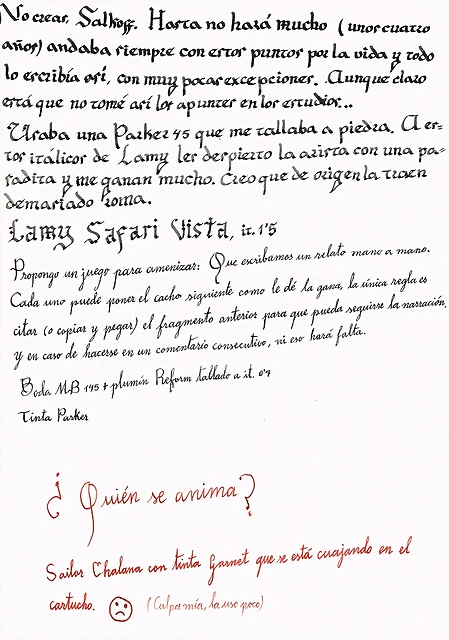 No crear, Salkoff. Hasta no hará mucho (unos cuatro
años) andaba siempre con estos puntos por la vida y todo
lo escribía así, con muy pocas excepciones. Aunque claro
está que no tomé así los apuntes en los estudios...
Usaba una Parker 45 que me tallaba a piedra. A es-
tos itálicos de Lamy les despierto la arista con una pa-
sadita y me ganan mucho. Creo que de origen la traen
demasiado roma.
Lamy Safari Vista, it. 1'5
Propongo un juego para amenizar: Que escribamos un relato mano a mano.
Cada uno puede poner el cacho siguiente como le dé la gana, la única regla es
citar (o copiar y pegar) el fragmento anterior para que pueda seguirse la narración,
y en caso de hacerse en un comentario consecutivo, ni eso hará falta.
Boda MB 145 + plumín Reform tallado a it. 0'7
Tinta Parker
¿Quién se anima?
Sailor Chalana con tinta Garnet que se está cuajando en el
cartucho. ☹ (Culpa mía, la uso poco)